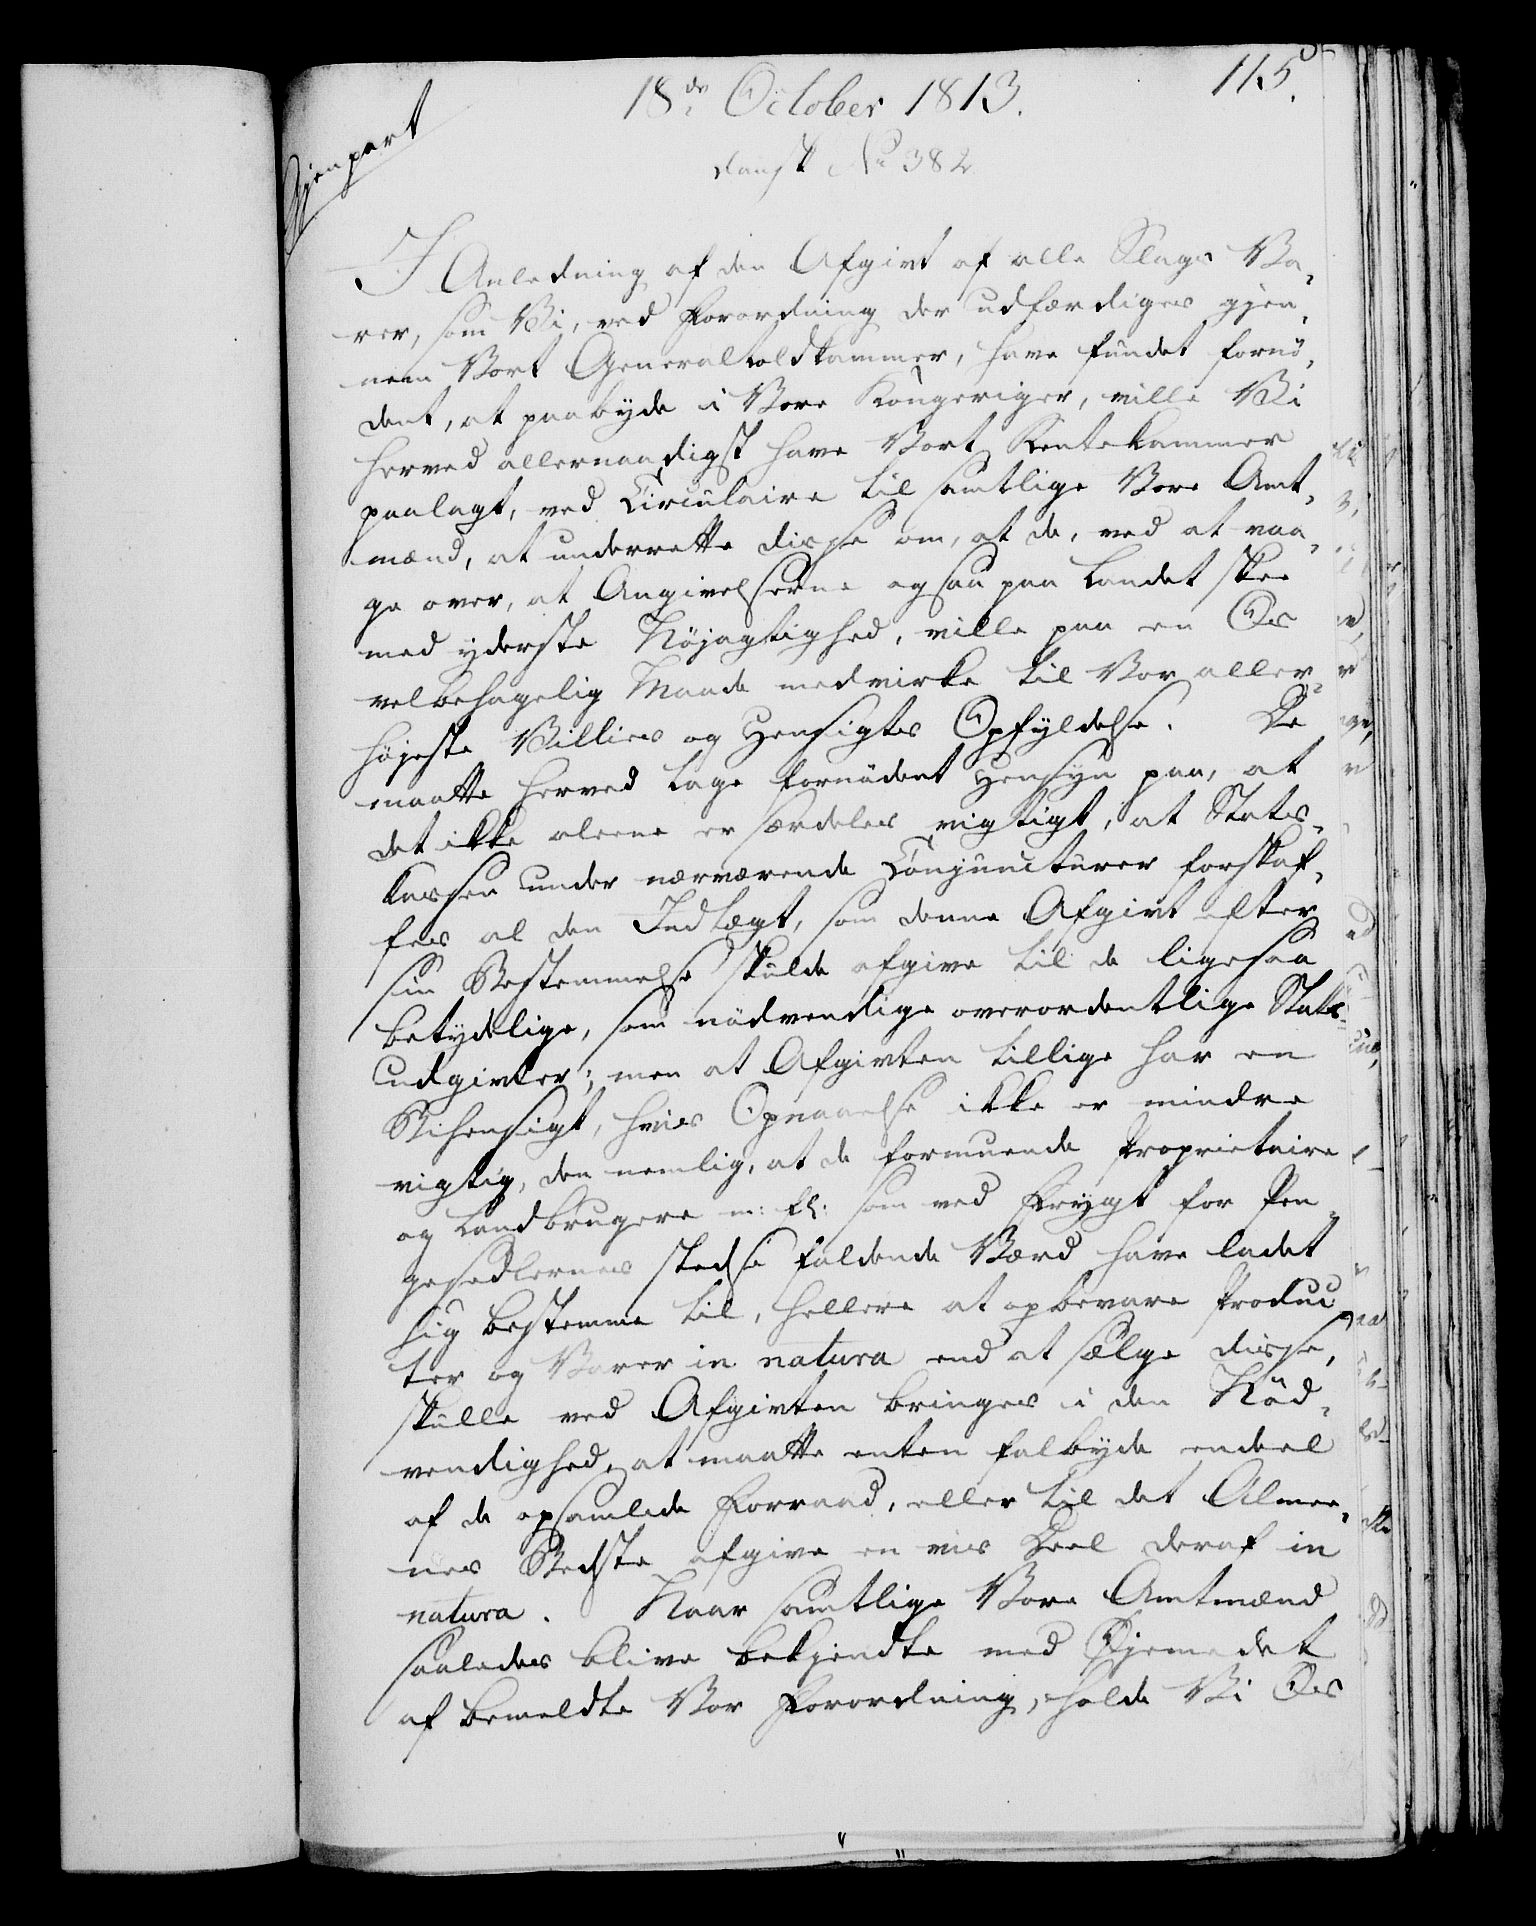 115.
18de October 1813.
Gjenpart
dansk No 382
I Anledning af den Afgivt af alle Slags Va¬
rer, som Vi, ved Forordning der udfærdiges gjen¬
nem Vort Generaltoldkammer, have fundet fornö¬
dent, at paabyde i Vore Kongeriger, ville Vi
herved allernaadigst have Vort Rentekammer
paalagt, ved Circulaire til samtlige Vore Amt¬
mænd, at underrette disse om, at de, ved at vaa¬
ge over, at Angivelserne ogsaa paa Landet skee
med yderste Nöjagtighed, ville paa en Os
velbehagelig Maade medvirke til Vor aller¬
höjeste Villies og Hensigtes Opfyldelse. De
maatte herved tage fornödent Hensyn paa, at
det ikke alene er særdeles vigtigt, at Stats¬
kassen under nærværende Conjuncturer forskaf¬
fes al den Indtægt, som denne Afgivt efter
sin Bestemmelse skulde afgive til de ligesaa
betydelige, som nödvendige overordentlige Stats¬
udgivter; men at Afgivten tillige har en
Bihensigt, hvis Opnaaelse ikke er mindre
vigtig, den nemlig, at de formuende Proprietaire
og Landbrugere m: fl: som ved Frygt for Pen¬
gesedlernes stedse faldende Værd have ladet
sig bestemme til, hellere at opbevare Produc¬
ter og Varer in natura end at sælge disse,
skulle ved Afgivten bringes i den Nöd¬
vendighed, at maatte enten falbyde endeel
af de opsamlede Forraad, eller til det Almee¬
nes Bedste afgive en vis Deel deraf in
natura. Naar samtlige Vore Amtmænd
saaledes blive bekjendte med Öjemedet
af bemeldte Vor Forordning, holde Vi Os